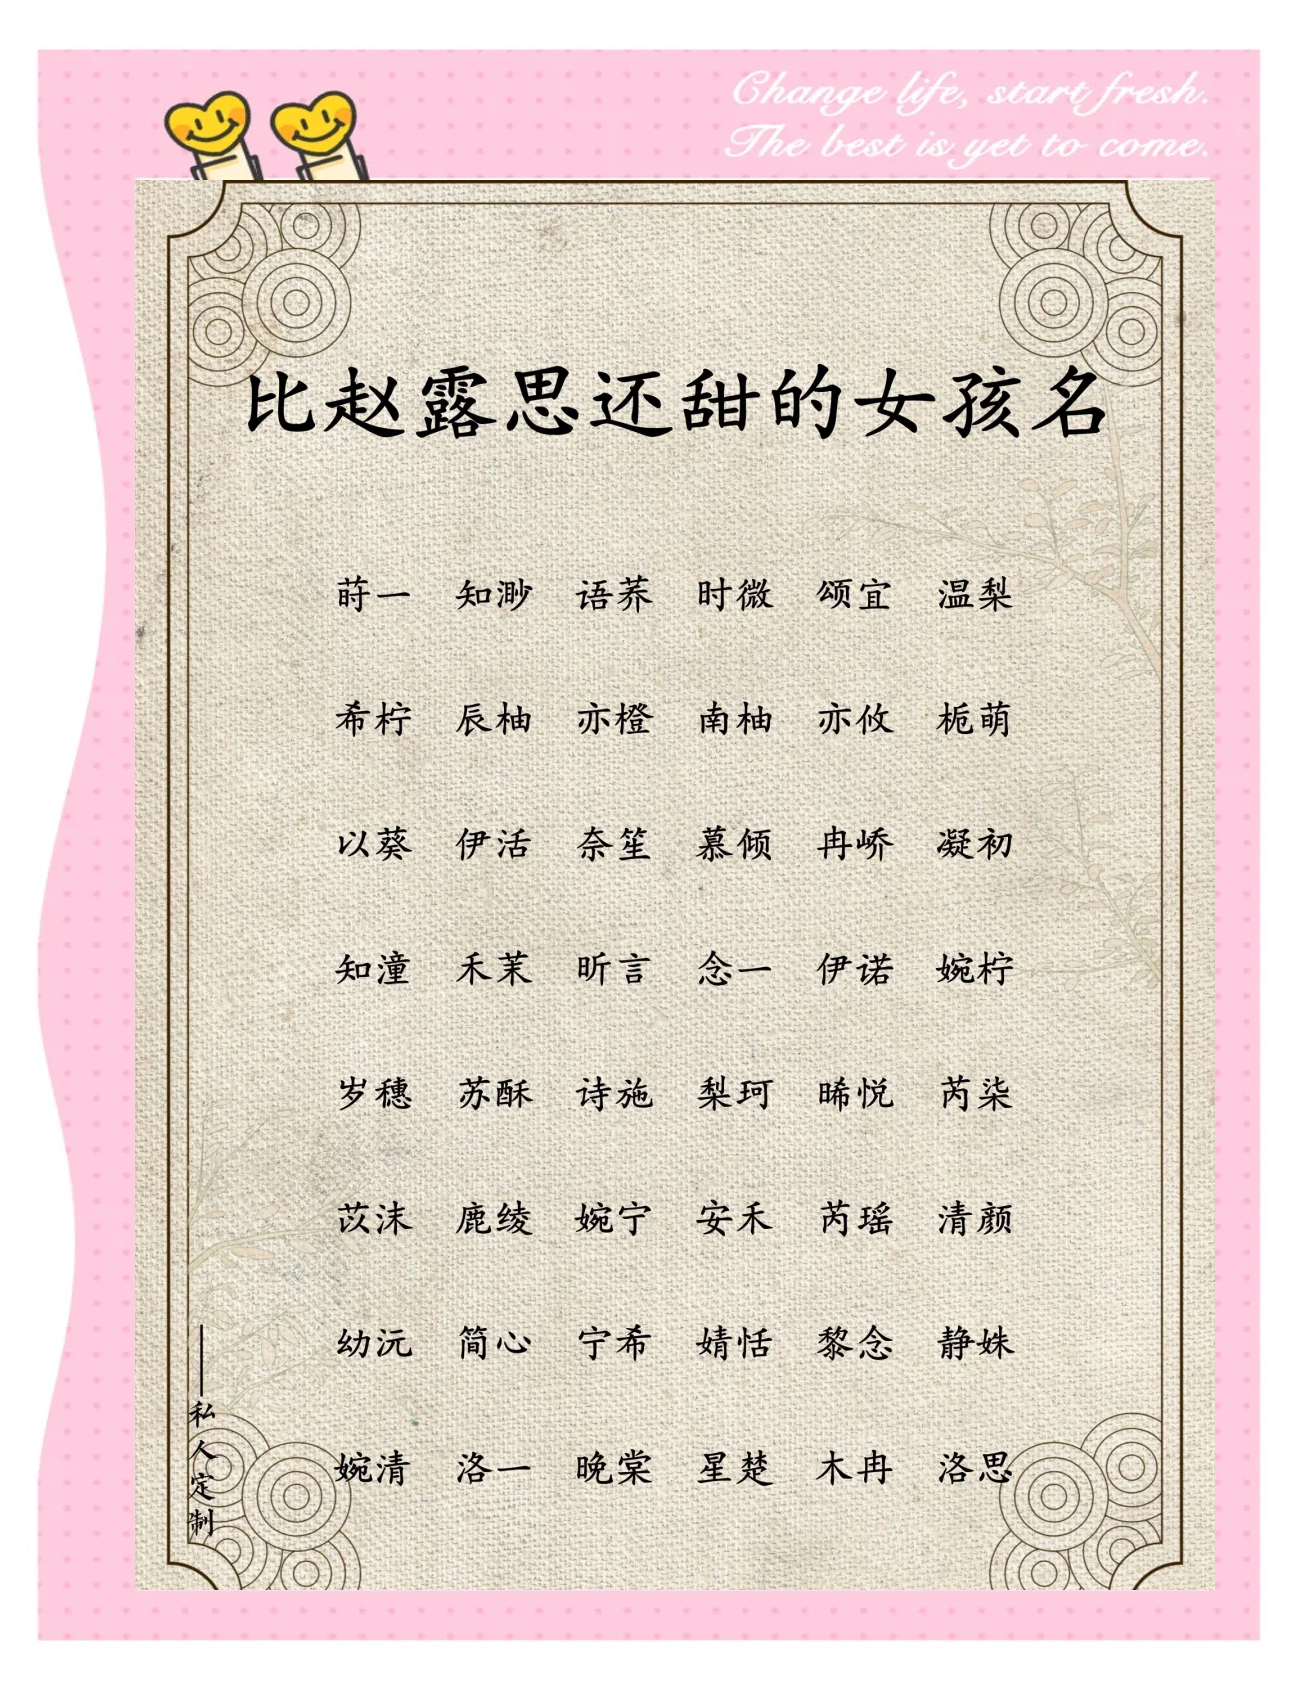 Change life, start fresh.
The best is yet to come.
比赵露思还甜的女孩名
莳一 知渺 语荞 时微 颂宜 温梨
希柠 辰柚 亦橙 南柚 亦攸 栀萌
以葵 伊活 奈笙 慕倾 冉峤 凝初
知潼 禾茉 昕言 念一 伊诺 婉柠
岁穗 苏酥 诗施 梨珂 晞悦 芮柒
苡沫 鹿绫 婉宁 安禾 芮瑶 清颜
幼沅 简心 宁希 婧恬 黎念 静姝
婉清 洛一 晚棠 星楚 木冉 洛思
——私人定制